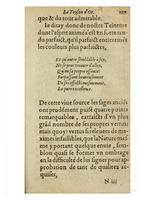 La Toyson d'or.
que & du tout admirable.
Ie diray donc de nostre Teinture
dont l'esprit animé s'est
parfaict, qu'il parfaict entierement
les couleurs plus parfaictes,
Et qu'autre semblable à soy,
Ne se peut trouuer
Qu'en sa propre essence
Parfaict
De ses effects
La pure excellence.
De ceste viue source les sages ancies
ont prudemment puisé quatre points
remarquables, extraicts d'vn plus
grand nombre de ses propres vertus:
mais quoy? vertus si releuees & de ma-
nieres infaillibles, que la Nature mes-
me y portant quelque enuie, sem-
bloit quasi se former vn ombrage
en la difficulté de luy signer pour ap-
probation de tant de qualitez ac-
quises,
N iiij